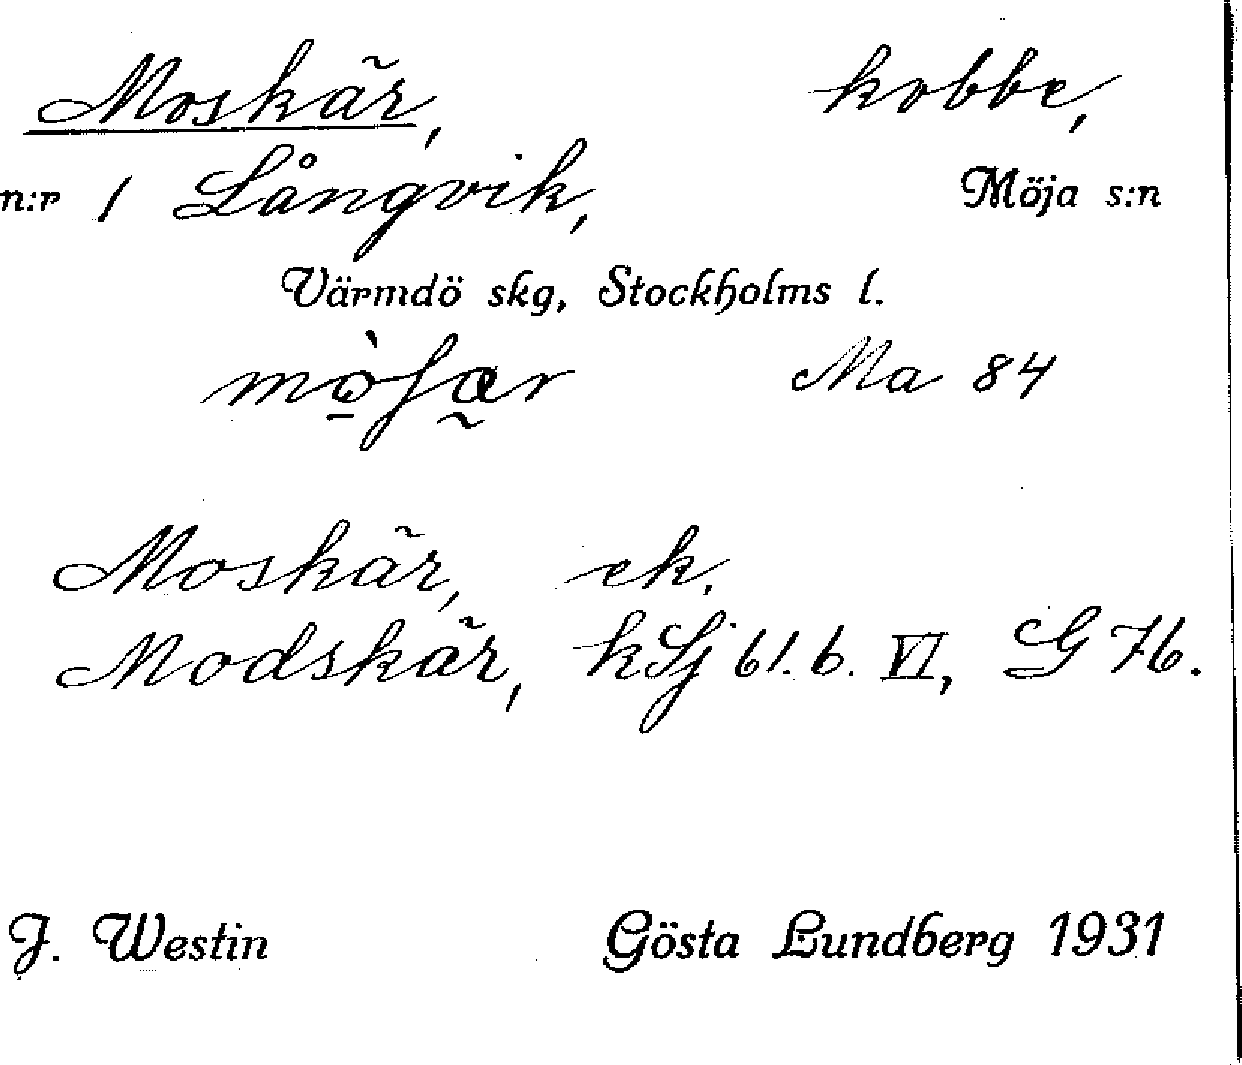 Moskär, kobbe,
n:r 1 Långvik, Möja s:n
Värmdö skg, Stockholms l.
Ma 84
Moskär, ek.
Modskär, kSj 61. b. VI, G 76.
J. Westin Gösta Lundberg 1931